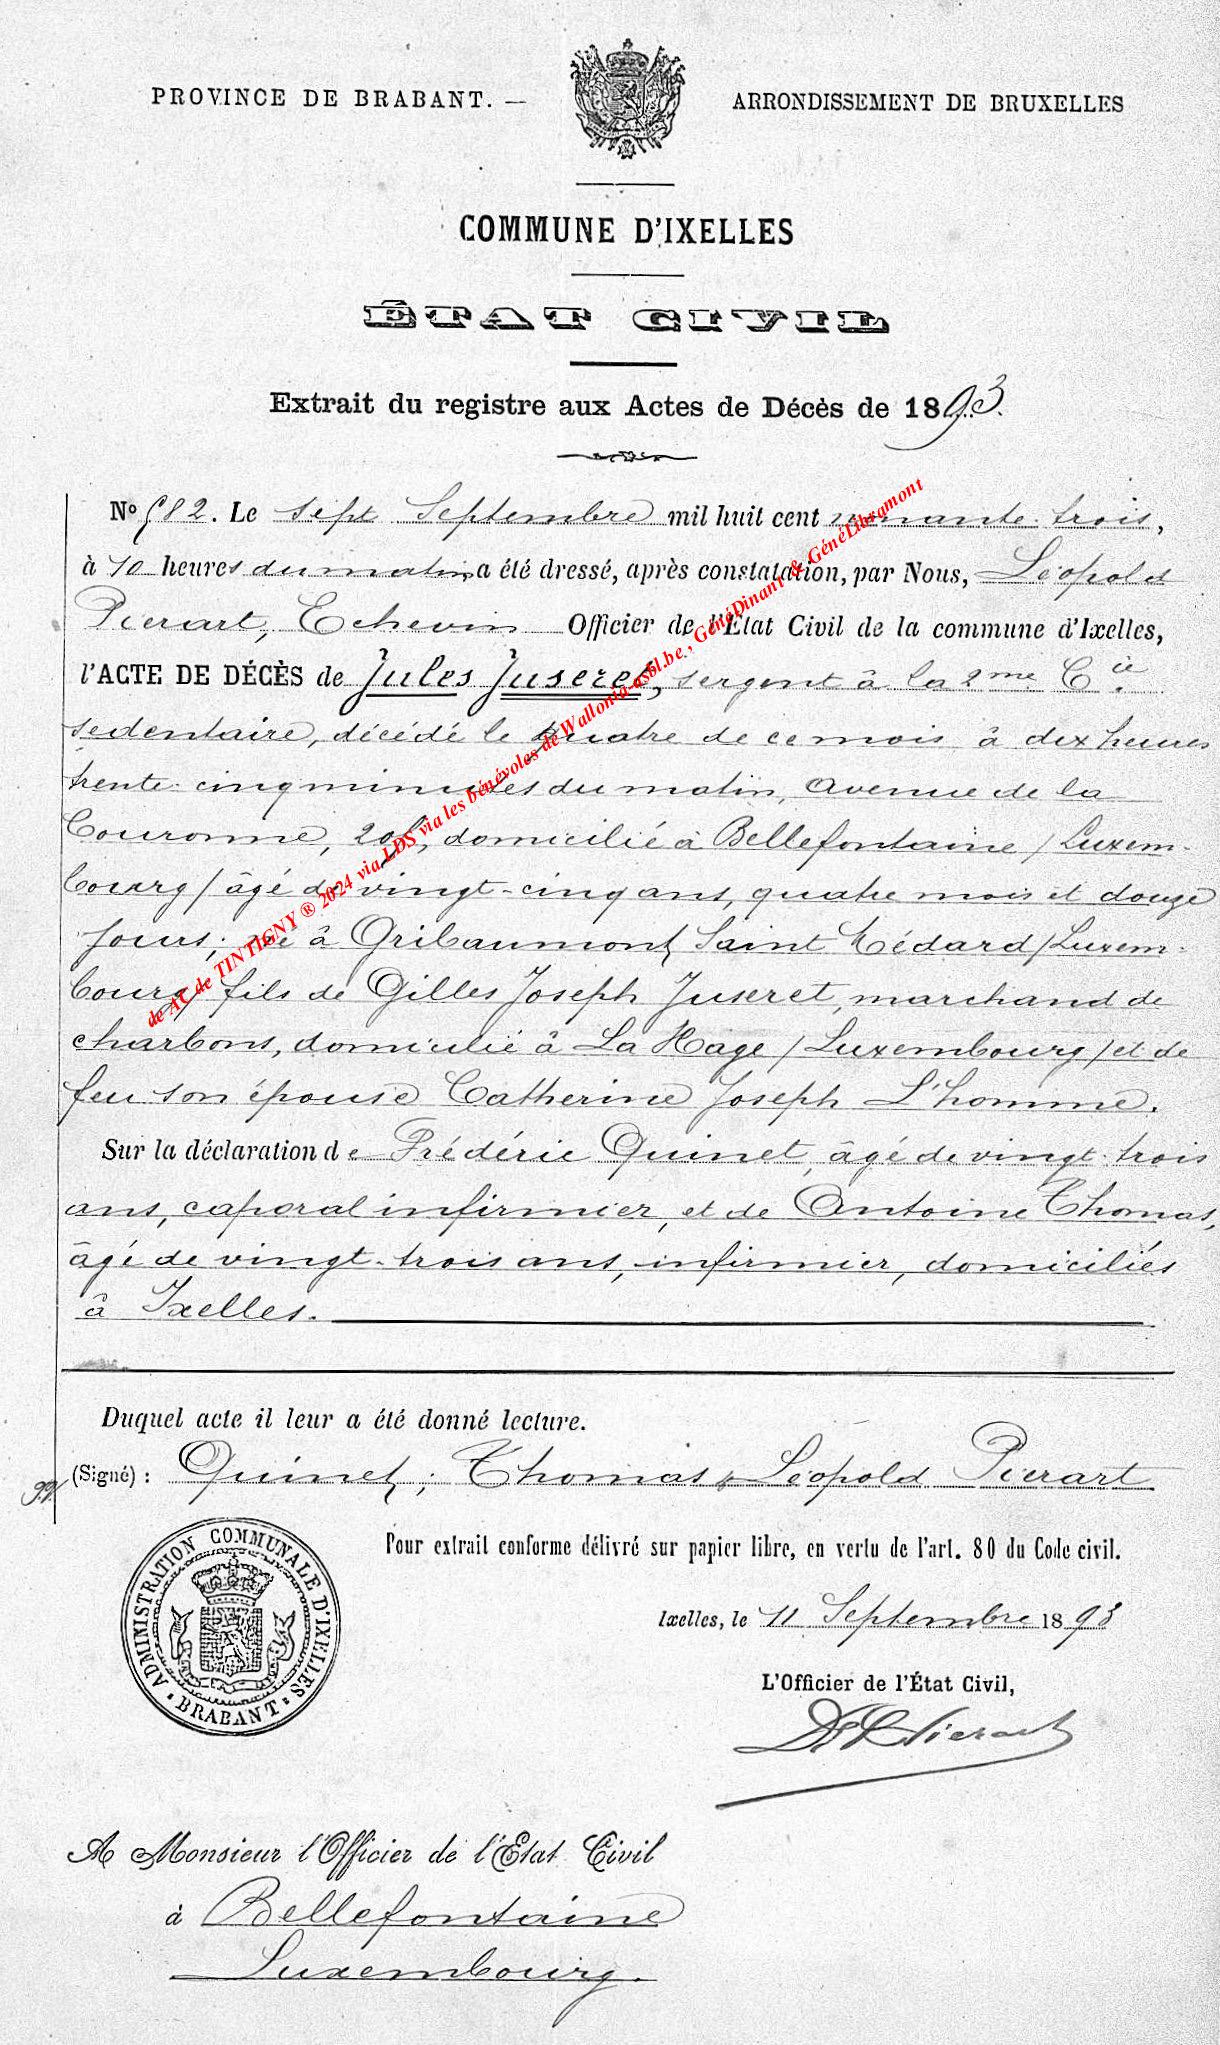 PROVINCE DE BRABANT. —
ARRONDISSEMENT DE BRUXELLES
COMMUNE D'IXELLES
ÉTAT CIVIL
Extrait du registre aux Actes de Décès de 1893.
No 982. Le sept Septembre mil huit cent nonante trois,
à 10 heures du matin a été dressé, après constatation, par Nous, Léopold
Pierart, Echevin Officier de l'État Civil de la commune d'Ixelles,
l'ACTE DE DÉCÈS de Jules Juseret, sergent à la 2me Cie
sedentaire, décédé le quatre de ce mois à dix heures
trente cinq minutes du matin, Avenue de la
Couronne, domicilié à Bellefontaine / Luxem-
bourg / âgé de vingt-cinq ans, quatre mois et douze
jours; né à Gribaumont, Saint Médard / Luxem-
bourg / fils de Gilles Joseph Juseret, marchand de
charbons, domicilié à La Hage / Luxembourg / et de
feu son épouse Catherine Joseph L'homme.
Sur la déclaration de Frédéric Quinet, âgé de vingt trois
ans, caporal infirmier, et de Antoine Thomas,
âgé de vingt-trois ans, infirmier, domiciliés
à Ixelles.
Duquel acte il leur a été donné lecture.
(Signé) : Quinet; Thomas & Léopold Pierart
Pour extrait conforme délivré sur papier libre, en vertu de l'art. 80 du Code civil.
ADMINISTRATION COMMUNALE D'IXELLES
BRABANT
Ixelles, le 11 Septembre 1893
L'Officier de l'État Civil,
Pierart
A Monsieur l'Officier de l'Etat Civil
à Bellefontaine
Luxembourg.
de AC de TINTIGNY ® 2024 via LDS via les bénévoles de Wallonia-asbl.be, GénéDinant & GénéLibramont